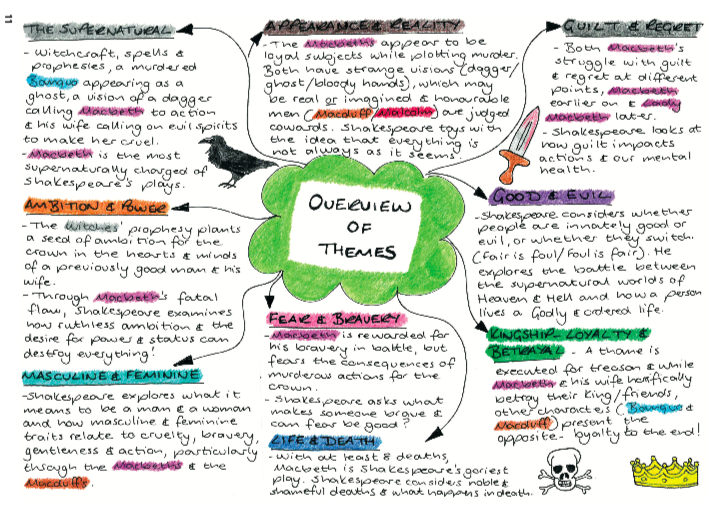 11
THE SUPERNATURAL
- Witchcraft, spells &
prophesies, a murdered
Banquo appearing as a
ghost, a vision of a dagger
calling Macbeth to action
& his wife calling on evil spirits
to make her cruel.
- Macbeth is the most
supernaturally charged of
Shakespeare's plays.
APPEARANCE & REALITY
- The Macbeths appear to be
loyal subjects while plotting murder.
Both have strange visions (dagger/
ghost/bloody hands), which may
be real or imagined & honourable
men (Macduff/Malcolm) are judged
cowards. Shakespeare toys with
the idea that everything is
not always as it seems.
GUILT & REGRET
- Both Macbeth's
struggle with guilt
& regret at different
points, Macbeth
earlier on & Lady
Macbeth later.
- Shakespeare looks at
how guilt impacts
actions & our mental
health.
AMBITION & POWER
- The Witches' prophesy plants
a seed of ambition for the
crown in the hearts & minds
of a previously good man & his
wife.
- Through Macbeth's fatal
flaw, Shakespeare examines
how ruthless ambition & the
desire for power & status can
destroy everything!
OVERVIEW
OF
THEMES
GOOD & EVIL
- Shakespeare considers whether
people are innately good or
evil, or whether they switch.
(Fair is foul/Foul is fair). He
explores the battle between
the supernatural worlds of
Heaven & Hell and how a person
lives a Godly & ordered life.
MASCULINE & FEMININE
- Shakespeare explores what it
means to be a man & a woman
and how masculine & feminine
traits relate to cruelty, bravery,
gentleness & action, particularly
through the Macbeths & the
Macduffs.
FEAR & BRAVERY
- Macbeth is rewarded for
his bravery in battle, but
fears the consequences of
murderous actions for the
crown.
- Shakespeare asks what
makes someone brave &
can fear be good?
LIFE & DEATH
- With at least 8 deaths,
Macbeth is Shakespeare's goriest
play. Shakespeare considers noble &
shameful deaths & what happens in death.
KINGSHIP - LOYALTY &
BETRAYAL - A thane is
executed for treason & while
Macbeth & his wife horrifically
betray their king/friends,
other characters (Banquo &
Macduff) present the
opposite - loyalty to the end!